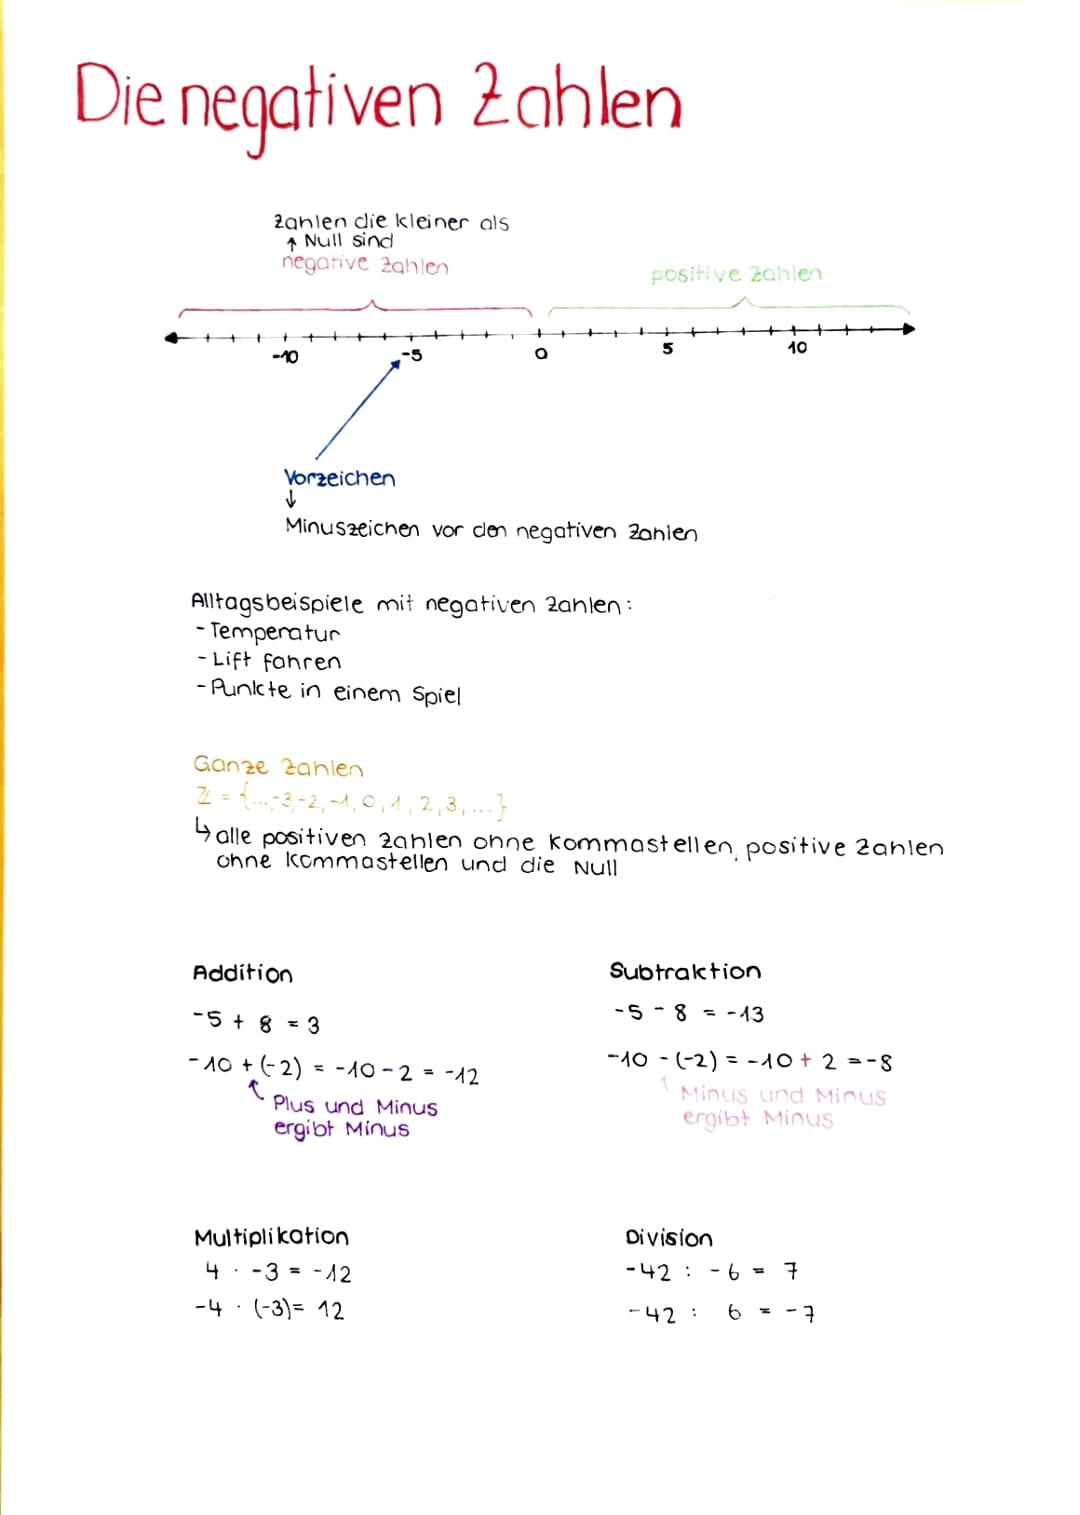 Die negativen Zahlen
Zahlen die kleiner als
↑ Null sind
negative Zahlen
positive Zahlen
-10 -5 0 5 10
Vorzeichen
↓
Minuszeichen vor den negativen Zahlen
Alltagsbeispiele mit negativen Zahlen:
- Temperatur
- Lift fahren
- Punkte in einem Spiel
Ganze Zahlen
ℤ = {...,-3-2,-1,0,1,2,3,...}
↳ alle positiven Zahlen ohne Kommastellen, positive Zahlen
ohne Kommastellen und die Null
Addition
-5 + 8 = 3
-10 + (-2) = -10 - 2 = -12
Plus und Minus
ergibt Minus
Subtraktion
-5 - 8 = -13
-10 - (-2) = -10 + 2 = -8
Minus und Minus
ergibt Minus
Multiplikation
4 · -3 = -12
-4 · (-3) = 12
Division
-42 : -6 = 7
-42 : 6 = -7